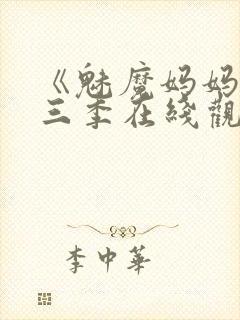 《魅魔妈妈
三季在綫觀
李中華